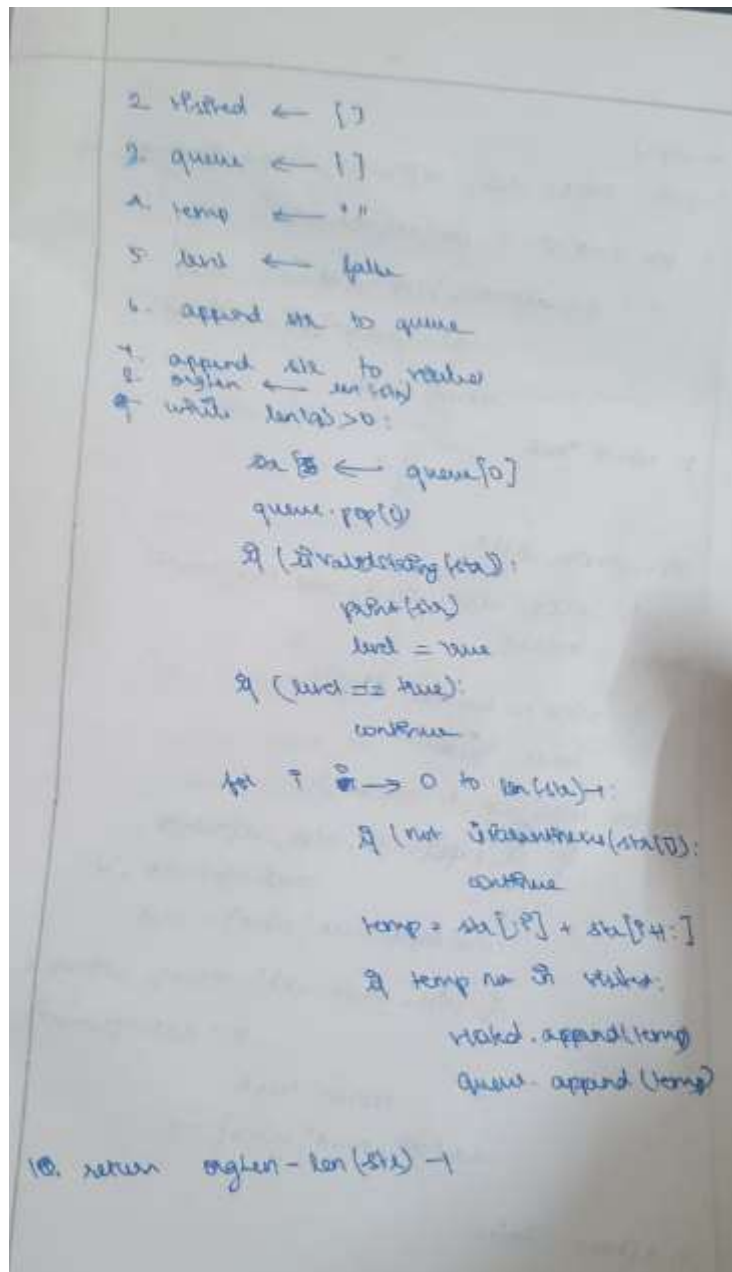 2. visited ← [ ]
3. queue ← [ ]
4. temp ← " "
5. level ← false
6. append str to queue
7. append str to visited
8. orglen ← len(str)
9. while len(q)>0:
str ← queue[0]
queue.pop()
if (isValidstring(str)):
print(str)
level = true
if (level == true):
continue
for i → 0 to len(str)-1:
if (not isParenthesis(str[i]):
continue
temp = str[:i] + str[i+1:]
if temp not in visited:
visited.append(temp)
queue.append(temp)
10. return orglen - len(str) -1